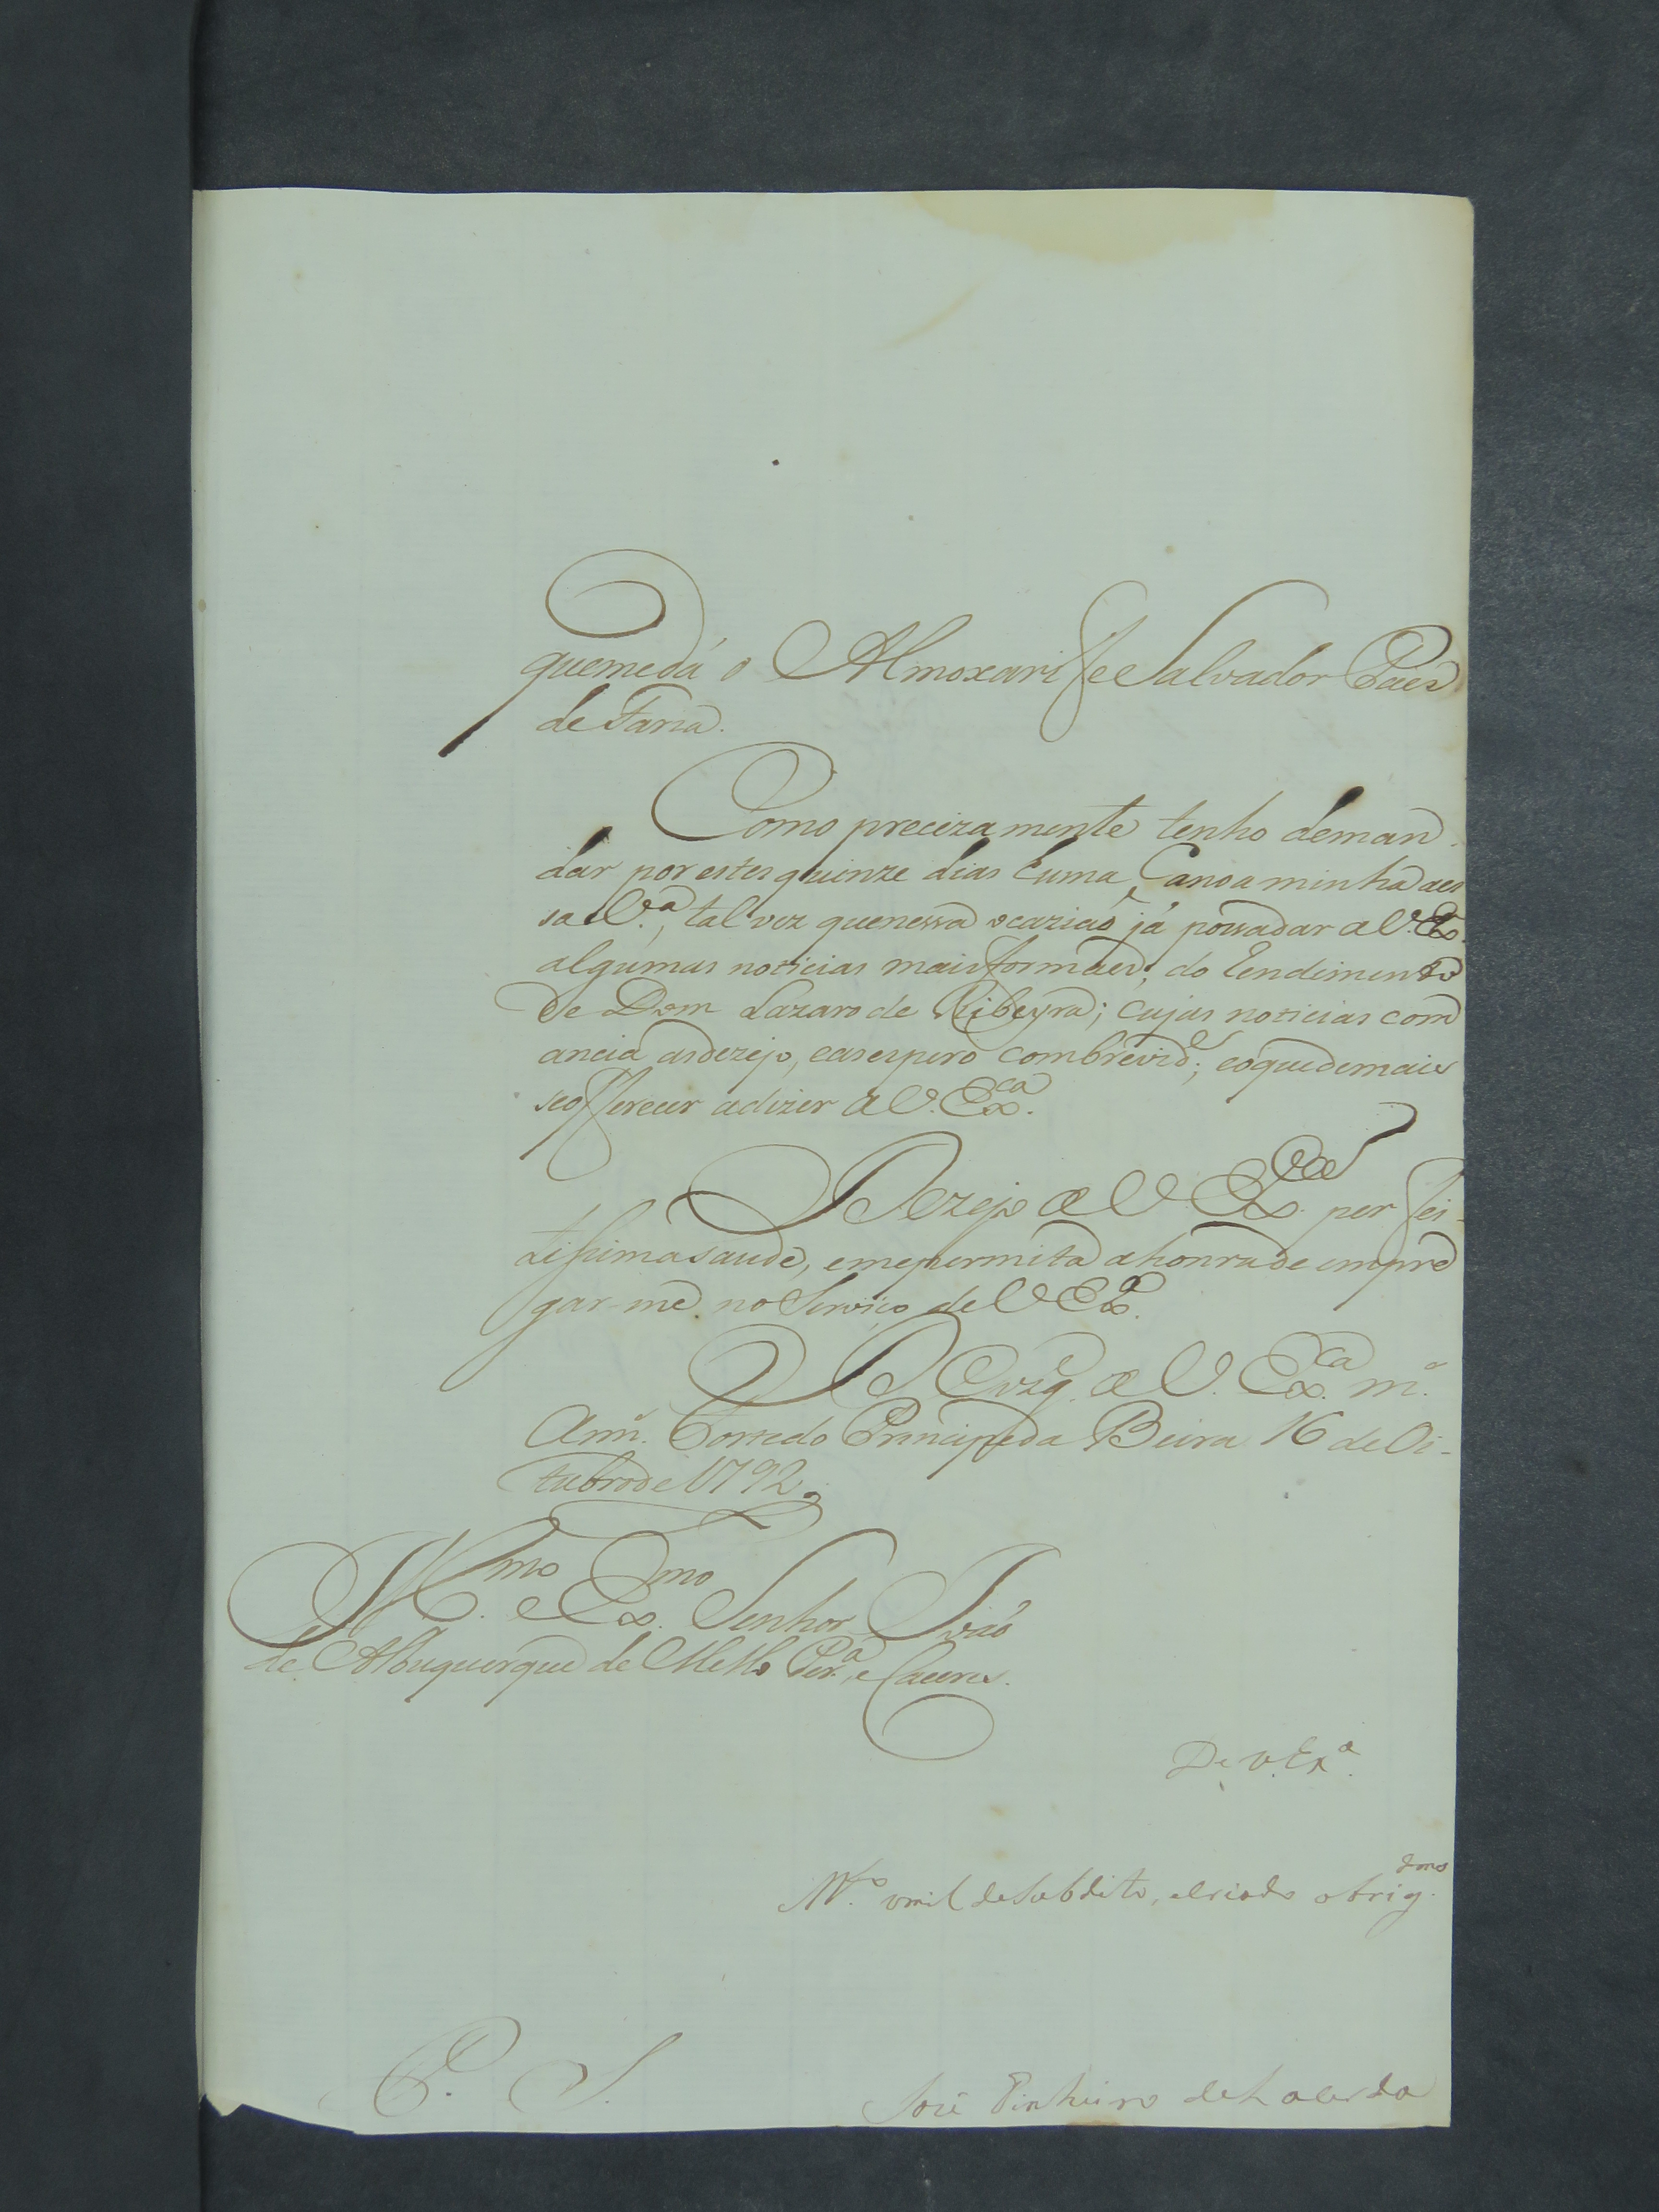 que me dá o Almoxarife Salvador Paes
de Faria.
Como precizamente tenho deman
dar por estes quinze dias huma Canoa minha aes
sa V.ª, tal vez que nessa ocaziaõ já possa dar a V. Ex.ª
algumas noticias mais formaes, do Rendimento
de Dom Lazaro de Ribeyra; cujas noticias com
ancia as dezejo, e as espero com brevid.e; e o que de mais
se offerecer a dizer a V. Ex.ca
Dezejo a V. Ex.ca perfei-
tissima saude, e me permita a honra de empre
gar-me no Serviço de V Ex.ª
D.s g.e a V. Ex.ca m.s
Ann.s Forte do Principe da Beira 16 de Oi-
tubro de 1792
Ill.mo e Ex.mo Senhor Joaõ
de Albuquerque de Mello Per.ª e Caceres.
De V. Ex.ª
M.to umilde Subdito, e Criado obrig.dmo
P. S.
José Pinheiro de Lacerda